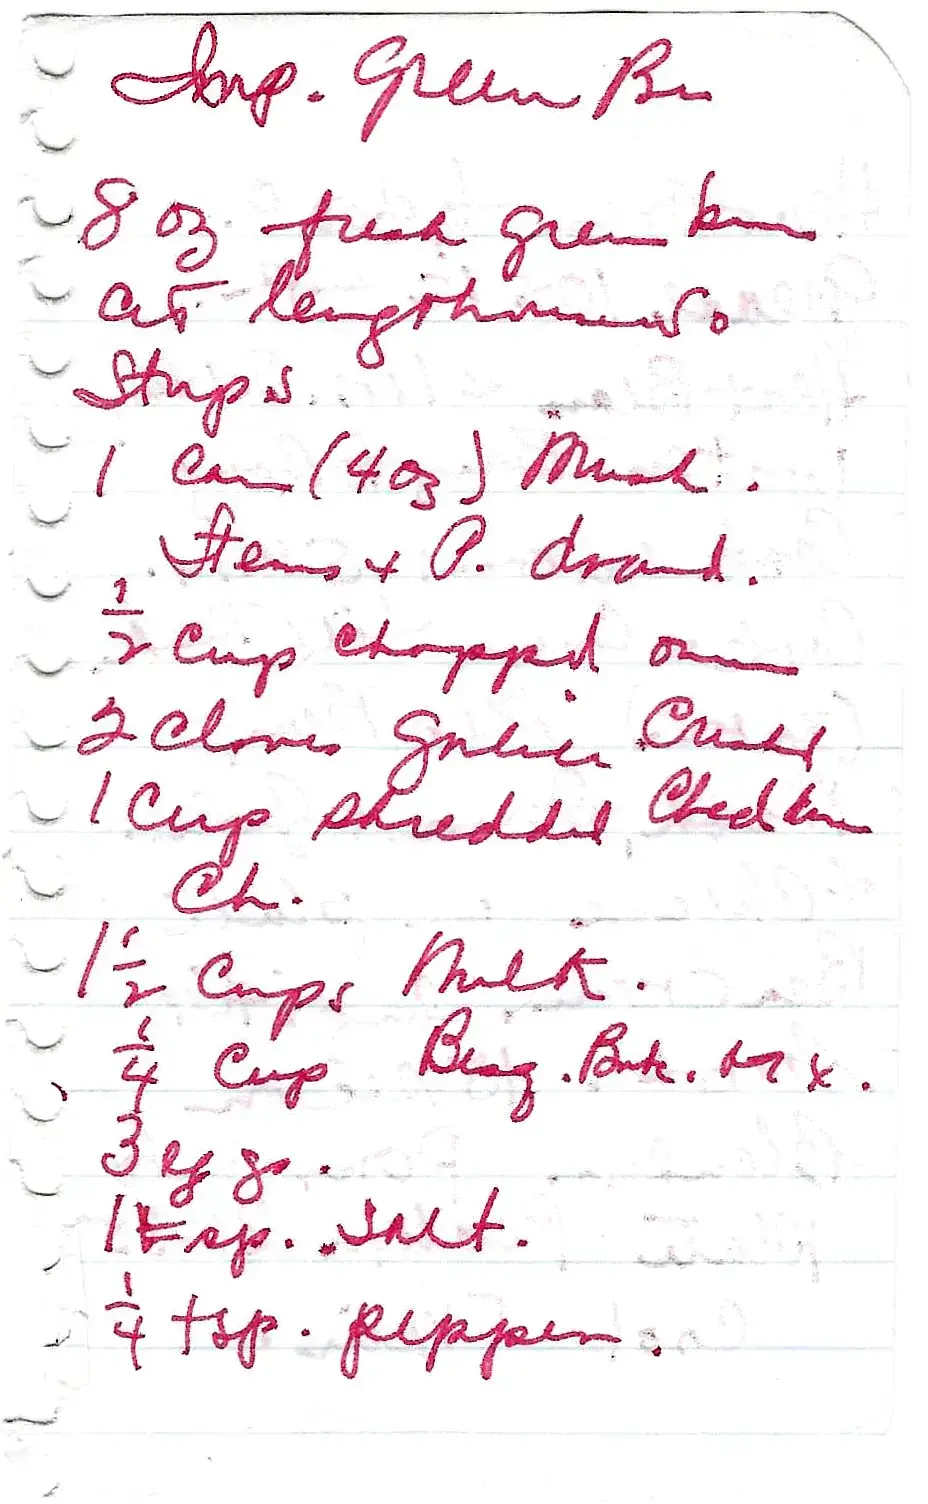 Imp. Green Bn
8 oz fresh green bean
cut lengthwise
Strips
1 Can (4 oz) Mush.
Stems + P. draind.
1/2 Cup chopped onion
2 cloves Garlic Crushd
1 Cup shredded Cheddar
Ch.
1 1/2 Cups Milk.
1/4 Cup Bisq. Bak. Mix.
3 eggs.
1 tsp. Salt.
1/4 tsp. pepper.